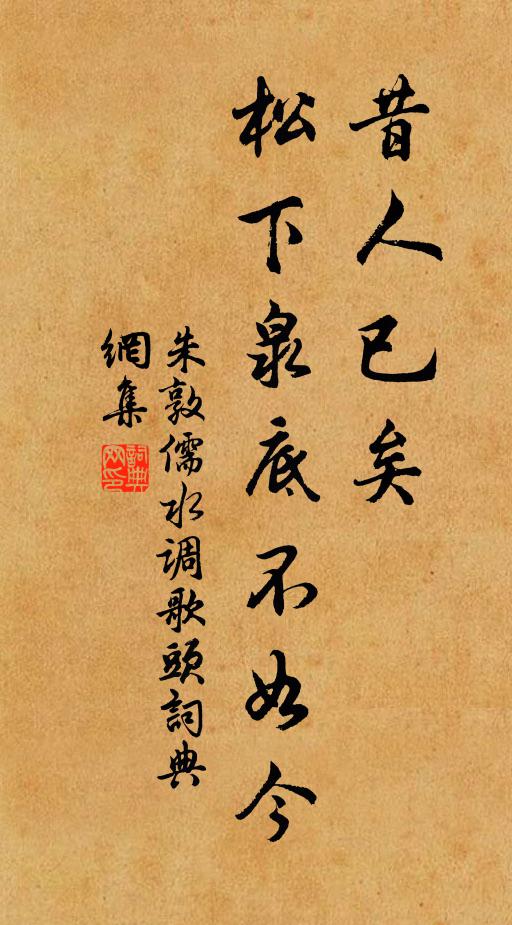 昔人已矣
松下泉底不如今
朱敦儒水调歌頭詞典
網集
詞典網印